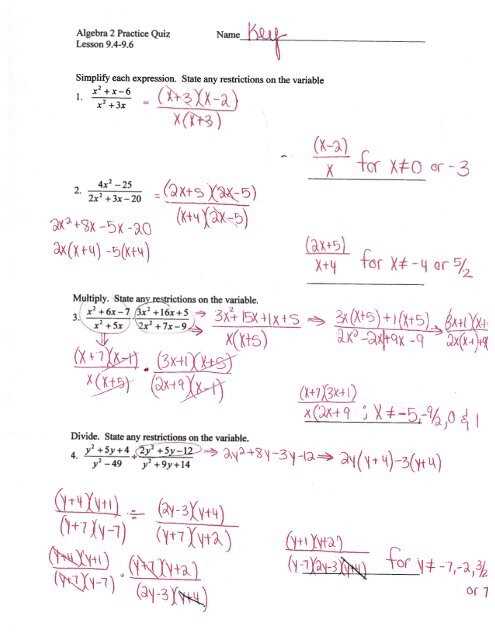 Algebra 2 Practice Quiz
Lesson 9.4-9.6
Name Key
Simplify each expression. State any restrictions on the variable
1. (x² + x - 6)/(x² + 3x) = (x+3)(x-2)/x(x+3)
(x-2)/x for x≠0 or -3
2. (4x² - 25)/(2x² + 3x - 20) = (2x+5)(2x-5)/(x+4)(2x-5)
2x²+8x-5x-20
2x(x+4) -5(x+4)
(2x+5)/x+4 for x≠ -4 or 5/2
Multiply. State any restrictions on the variable.
3. (x² + 6x - 7)/(x² + 5x) · (3x² + 16x + 5)/(2x² + 7x - 9) → 3x²+15x+1x+5/x(x+5) ⇒ 3x(x+5)+1(x+5)/2x²-2x+9x-9
(x+7)(x-1)/x(x+5) · (3x+1)(x+5)/(2x+9)(x-1)
(x+7)(3x+1)/x(2x+9 ; x≠-5,-9/2, 0 & 1
Divide. State any restrictions on the variable.
4. (y² + 5y + 4)/(y² - 49) ÷ (2y² + 5y - 12)/(y² + 9y + 14) → 2y²+8y-3y-12 ⇒ 2y(y+4)-3(y+4)
(y+4)(y+1)/(y+7)(y-7) ÷ (2y-3)(y+4)/(y+7)(y+2)
(y+4)(y+1)/(y+7)(y-7) · (y+7)(y+2)/(2y-3)(y+4)
(y+1)(y+2)/(y-7)(2y-3)(y+4) for y≠ -7, -2, 3/2
or 7